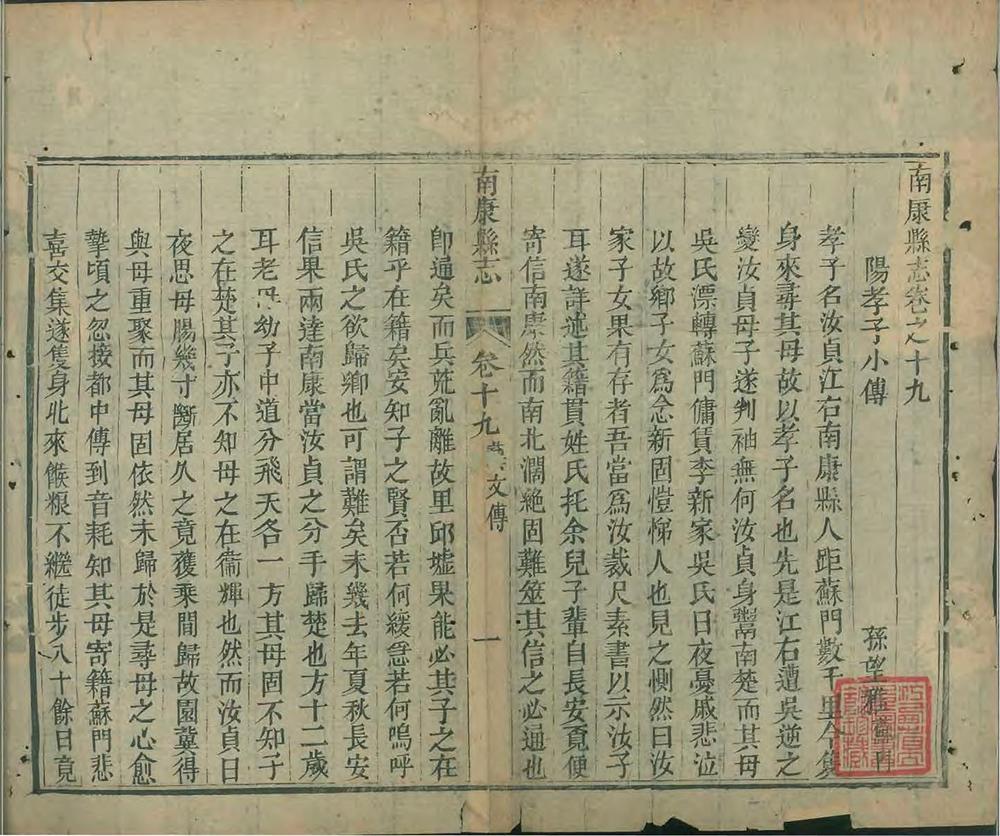 南康縣志卷之十九
陽孝子小傳
孫望雅
孝子名汝貞江右南康縣人距蘇門數千里今隻
身來尋其母故以孝子名也先是江右遭吳逆之
變汝貞母子遂判袖無何汝貞身鬻南楚而其母
吳氏漂轉蘇門傭賃李新家吳氏日夜憂戚悲泣
以故鄉子女為念新固愷悌人也見之惻然曰汝
家子女果有存者吾當為汝裁尺素書以示汝子
耳遂詳述其籍貫姓氏托余兒子輩自長安覓便
寄信南康然而南北濶絶固難筮其信之必通也
南康縣志
卷十九
文傳
一
卽通矣而兵荒亂離故里邱墟果能必其子之在
籍乎在籍矣安知子之賢否若何緩急若何嗚呼
吳氏之欲歸鄉也可謂難矣未幾去年夏秋長安
信果兩達南康當汝貞之分手歸楚也方十二歲
耳老母幼子中道分飛天各一方其母固不知子
之在楚其子亦不知母之在衞輝也然而汝貞日
夜思母腸幾寸斷居久之竟獲乘間歸故園冀得
與母重聚而其母固依然未歸於是尋母之心愈
摯頃之忽接都中傳到音耗知其母寄籍蘇門悲
喜交集遂隻身北來餱粮不繼徒步八十餘日竟